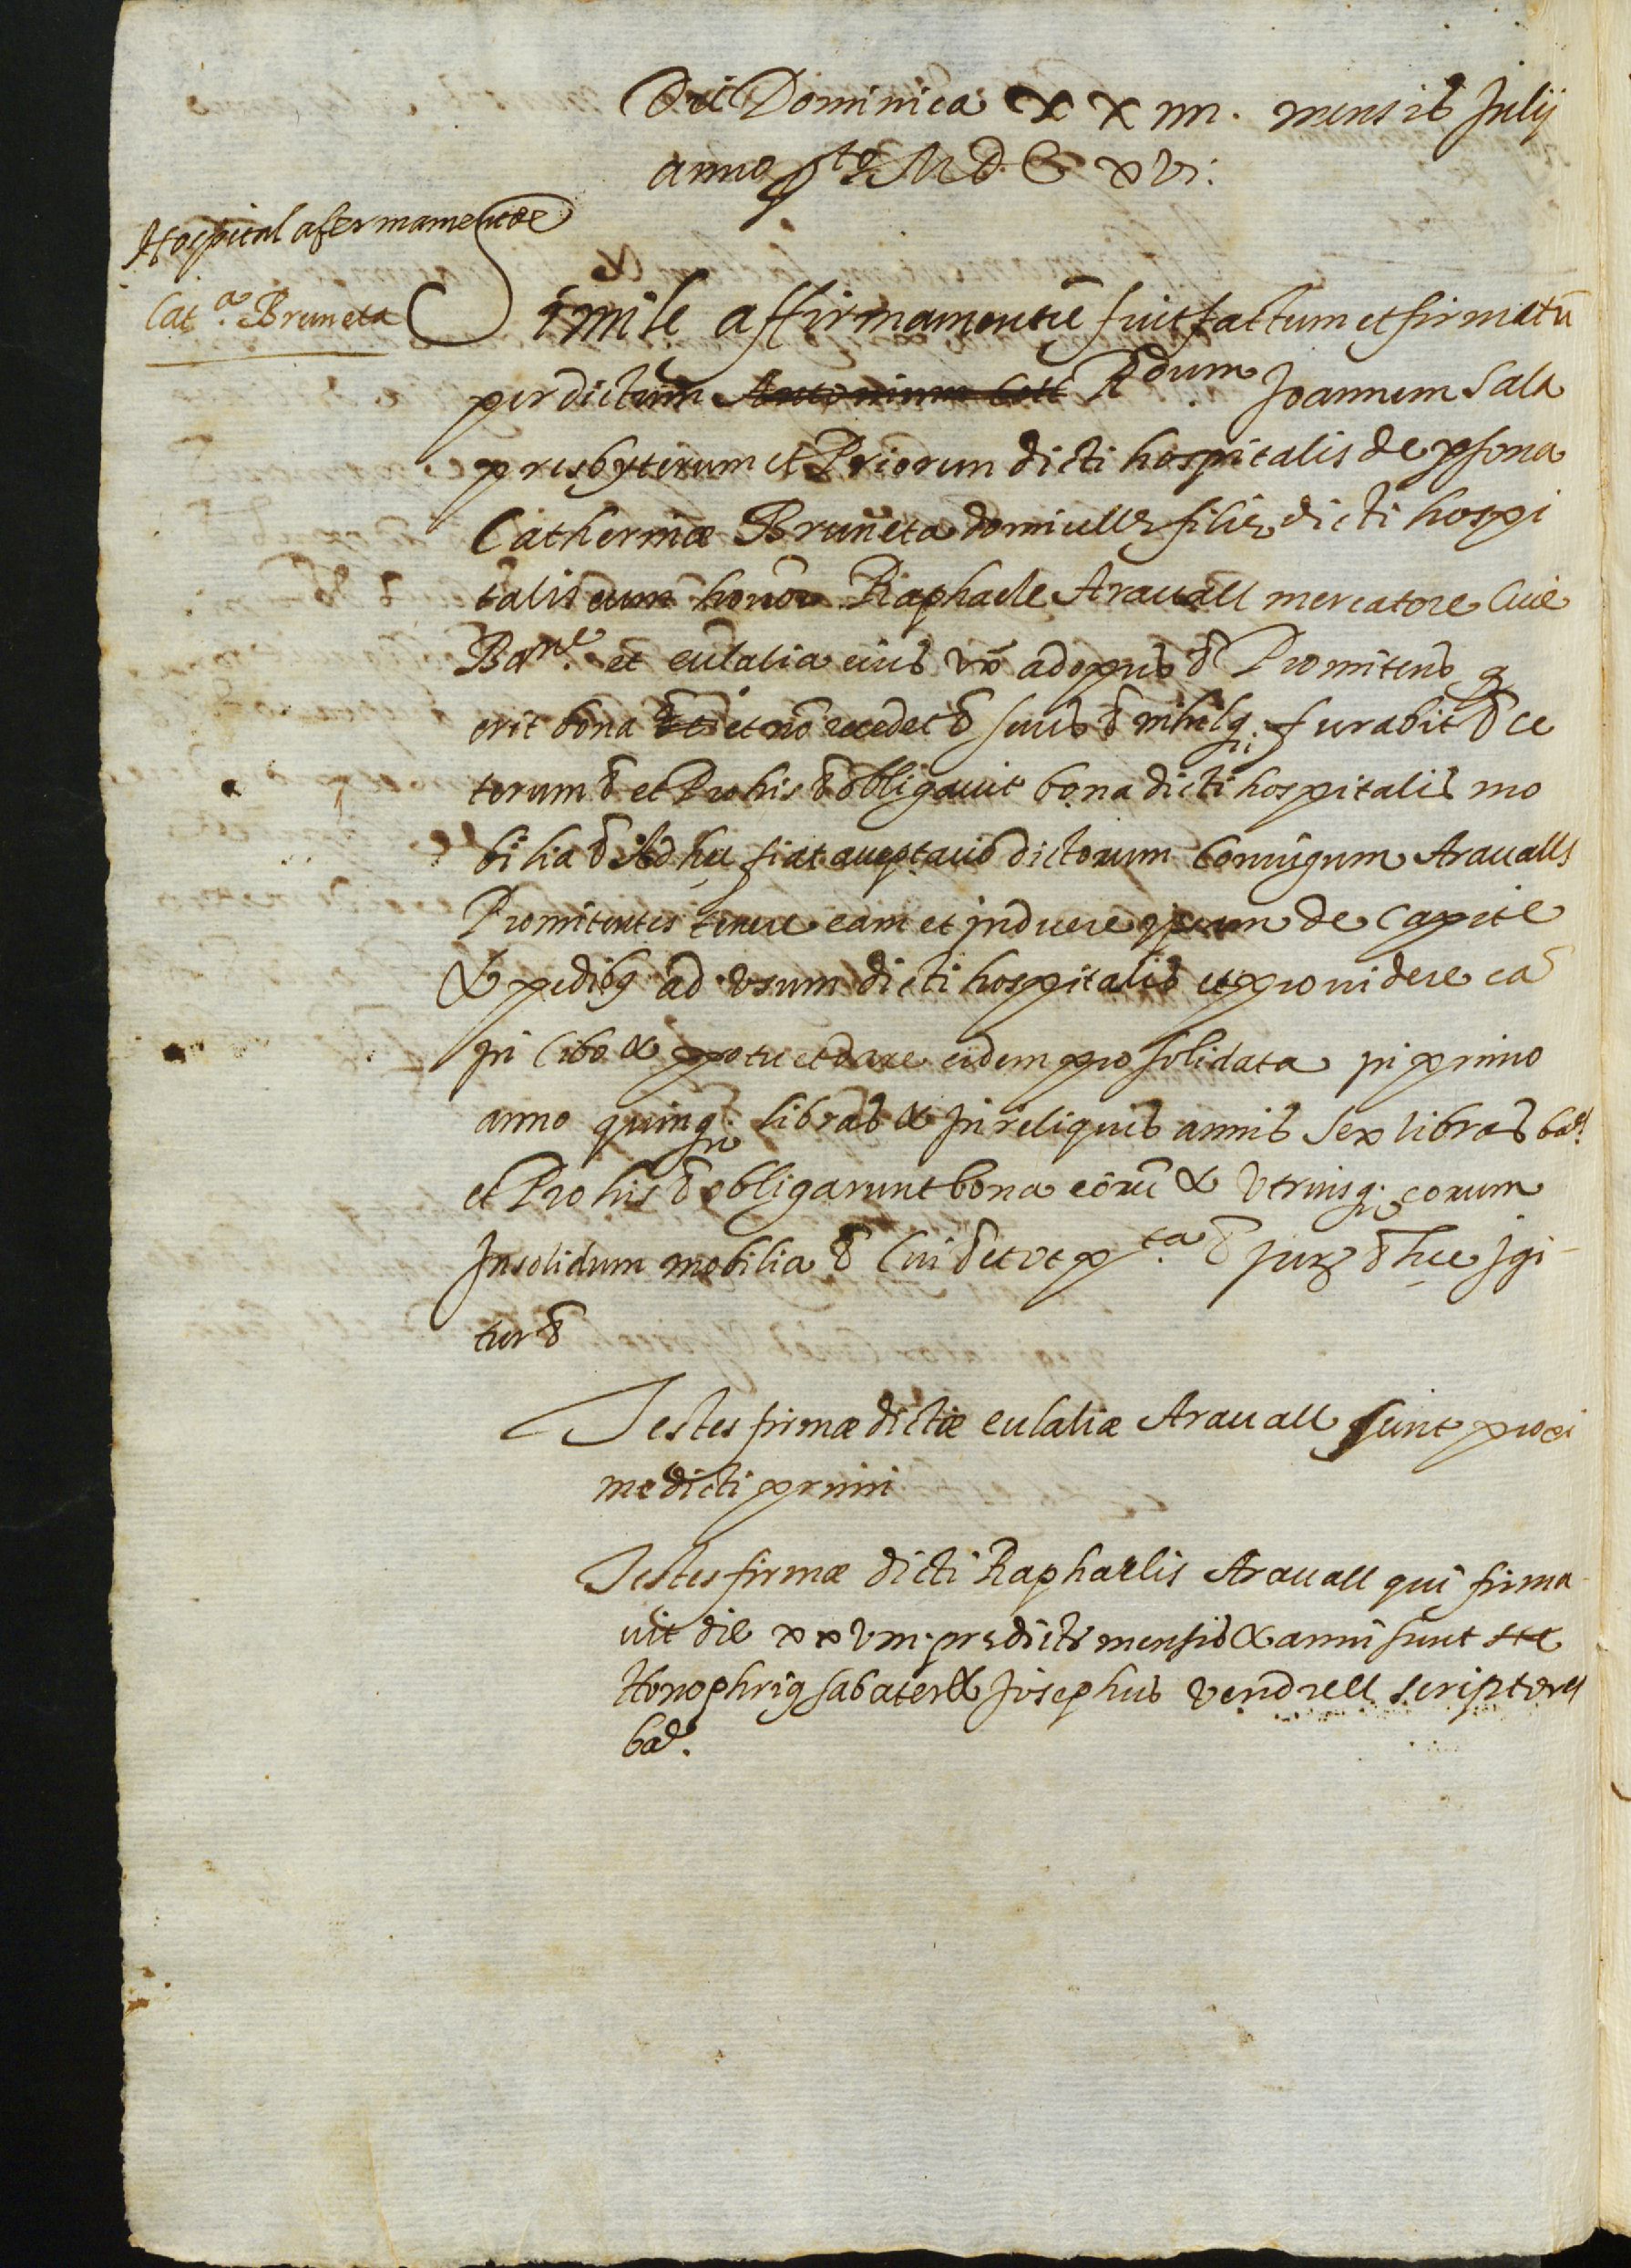 Die Dominica XXIIII. mensis Julij
anno p.to M D C XVI.
Hospital afermament de
Cat.a Bruneta
Simile affirmamentū fuit factum et firmatū
per dictum Antonium Coll R.dum Joannem Sala
presbyterum et Priorem dicti hospitalis de psona
Catherinæ Bruneta domicellę filię dicti hospi
talis cum honor. Raphaele Arauall mercatore Ciue
Bar.ne et eulalia eius vx̄ ad opus &̄ Promitens q
erit bona et nō recedet &̄ seruis &̄ nihilq; furabit &̄ ce
terum &̄ et Pro his &̄ obligauit bona dicti hospitalis mo
bilia &̄ Ad hec fiat acceptatio dictorum coniugum Araualls
Promitentes tenere eam et induere de capite
& pedibq ad vsum dicti hospitalis et prouidere eā
in cibo & potu et dare eidem pro solidata in primo
anno quinq; libras & in reliquis annis sex libras ba.e
et Pro his &̄ obligarunt bona eorū & vtriusq; eorum
Insolidum mobilia &̄ Cui &̄ et vt p.ta &̄ jurę &̄ hęc igi-
tur &̄
Testes firmæ dictæ eulaliæ Arauall sunt proxi
me dicti primi
Testes firmæ dicti Raphaelis Arauall qui firma-
uit die xxviii. prędicti mensis & anni sunt
Honophriq sabater & Josephus vendrell scriptores
ba.e